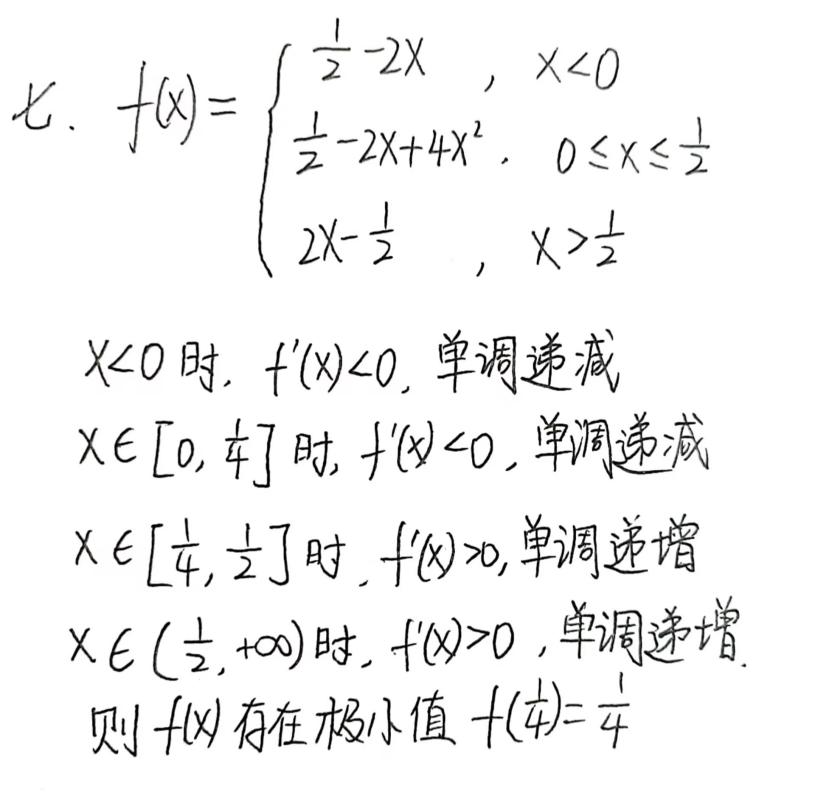 七. f(x)= { 1/2 -2x , x<0
1/2 -2x+4x², 0≤x≤1/2
2x-1/2 , x>1/2
x<0时, f'(x)<0, 单调递减
x∈[0, 1/4]时, f'(x)<0, 单调递减
x∈[1/4, 1/2]时, f'(x)>0, 单调递增
x∈(1/2, +∞)时, f'(x)>0, 单调递增.
则f(x)存在极小值 f(1/4)=1/4